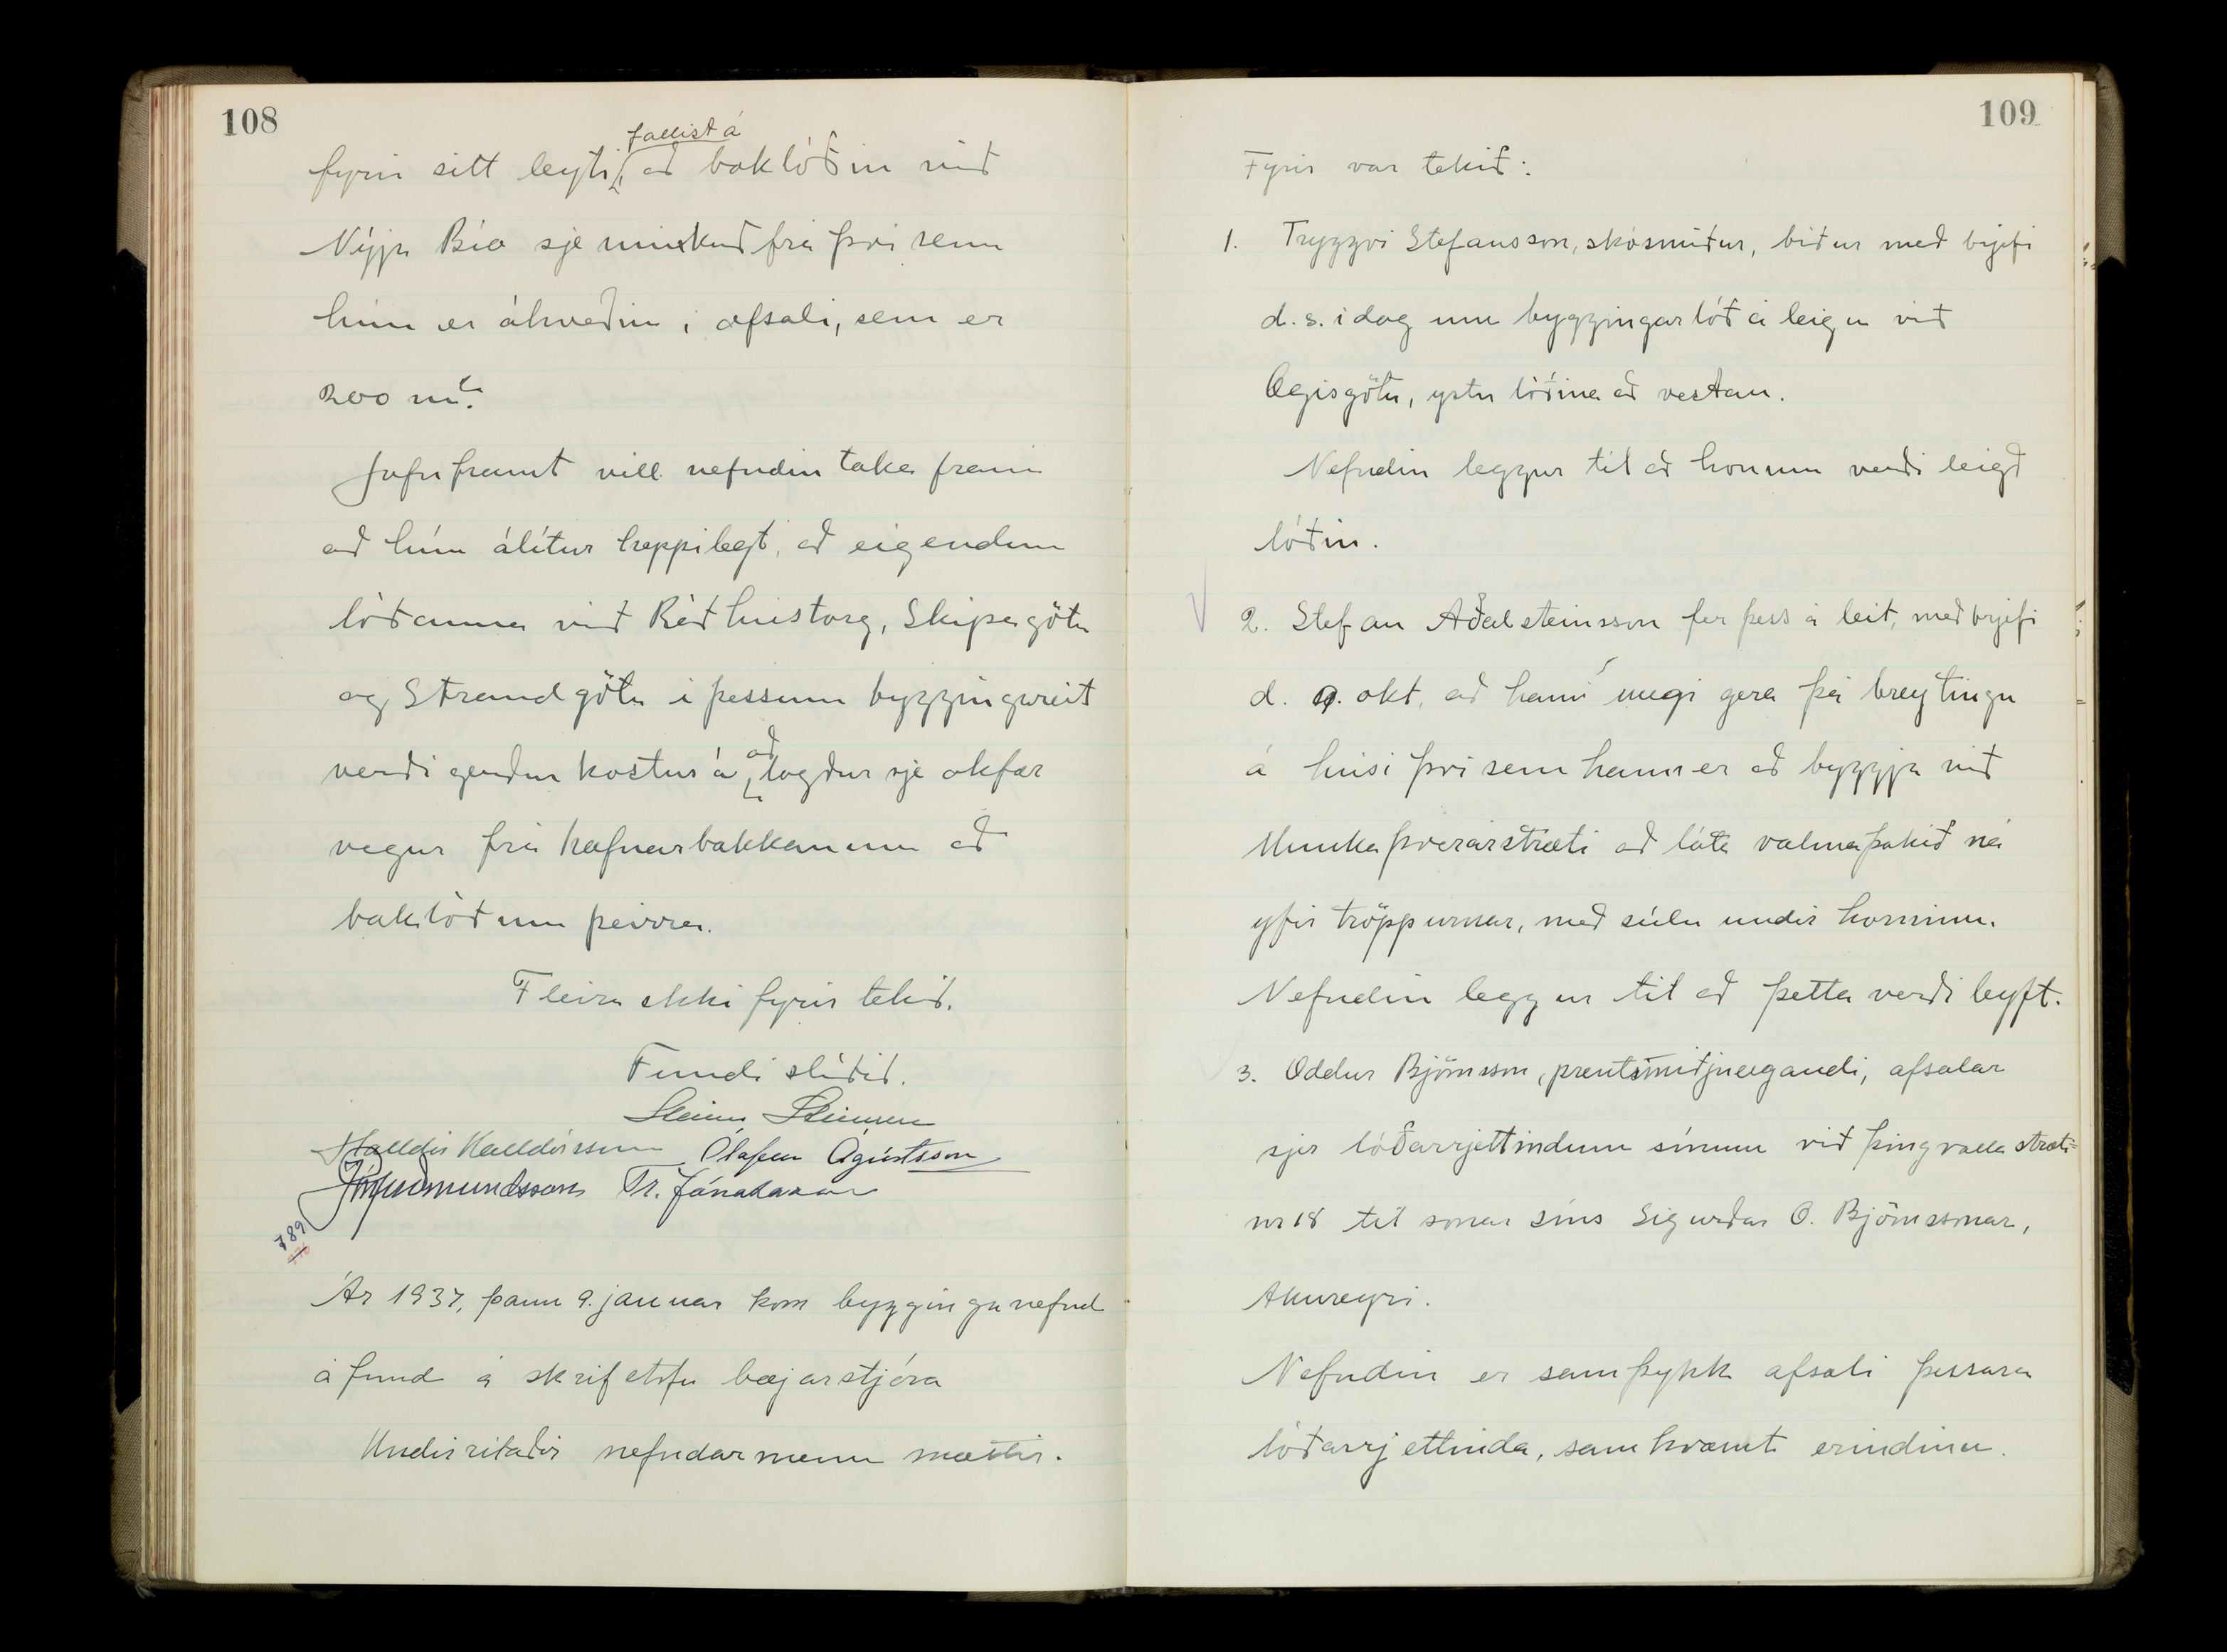 108
fallist á
fyrir sitt leyti, að baklóðin við
Nýja Bíó sje minkuð frá því sem
hún er ákveðin í afsali, sem er
200 m².
Jafnframt vill nefndin taka fram
að hún álítur heppilegt, að eigendum
lóðanna við Ráðhústorg, Skipagötu
og Strandgötu í þessum byggingareit
að
verði gerður kostur á lagður sje akfær
vegur frá hafnarbakkanum að
baklóðum þeirra.
Fleira ekki fyrir tekið.
Fundi slitið.
Steinn Steinsen
Halldór Halldórsson Ólafur Ágústsson
Jón Guðmundsson Tr. Jónatansson
789
Ár 1937, þann 9. janúar kom bygginganefnd
á fund á skrifstofu bæjarstjóra
Undirritaðir nefndarmenn mættir.
109
Fyrir var tekið:
1. Tryggvi Stefánsson, skósmiður, biður með brjefi
d. s. í dag um byggingarlóð á leigu við
Ægisgötu, ystu lóðina að vestan.
Nefndin leggur til að honum verði leigð
lóðin.
2. Stefán Aðalsteinsson fer þess á leit, með brjefi
d. 9. okt, að hann megi gera þá breytingu
á húsi því sem hann er að byggja við
Munkaþverárstræti að láta valmaþakið ná
yfir tröppurnar, með súlu undir horninu.
Nefndin leggur til að þetta verði leyft.
3. Oddur Björnsson, prentsmiðjueigandi, afsalar
sjer lóðarrjettindum sínum við Þingvallastræti
nr 18 til sonar síns Sigurðar O. Björnssonar,
Akureyri.
Nefndin er samþykk afsali þessara
lóðarrjettinda, samkvæmt erindinu.